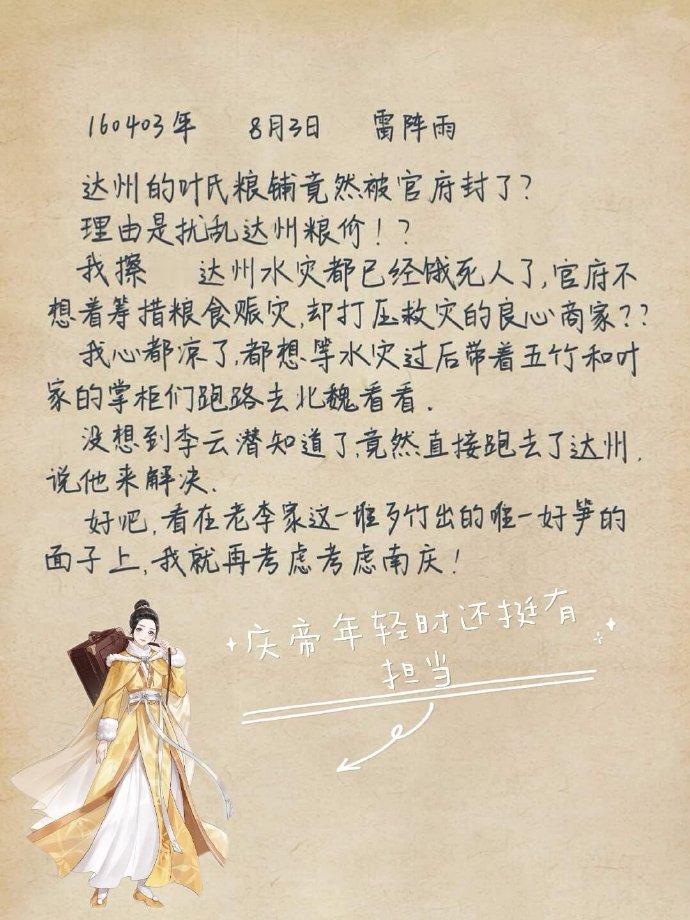 160403年 8月3日 雷阵雨
达州的叶氏粮铺竟然被官府封了?
理由是扰乱达州粮价!?
我擦 达州水灾都已经饿死人了,官府不
想着筹措粮食赈灾,却打压救灾的良心商家??
我心都凉了,都想等水灾过后带着五竹和叶
家的掌柜们跑路去北魏看看.
没想到李云潜知道了,竟然直接跑去了达州,
说他来解决.
好吧,看在老李家这一堆歹竹出的唯一好笋的
面子上,我就再考虑考虑南庆!
庆帝年轻时还挺有
担当